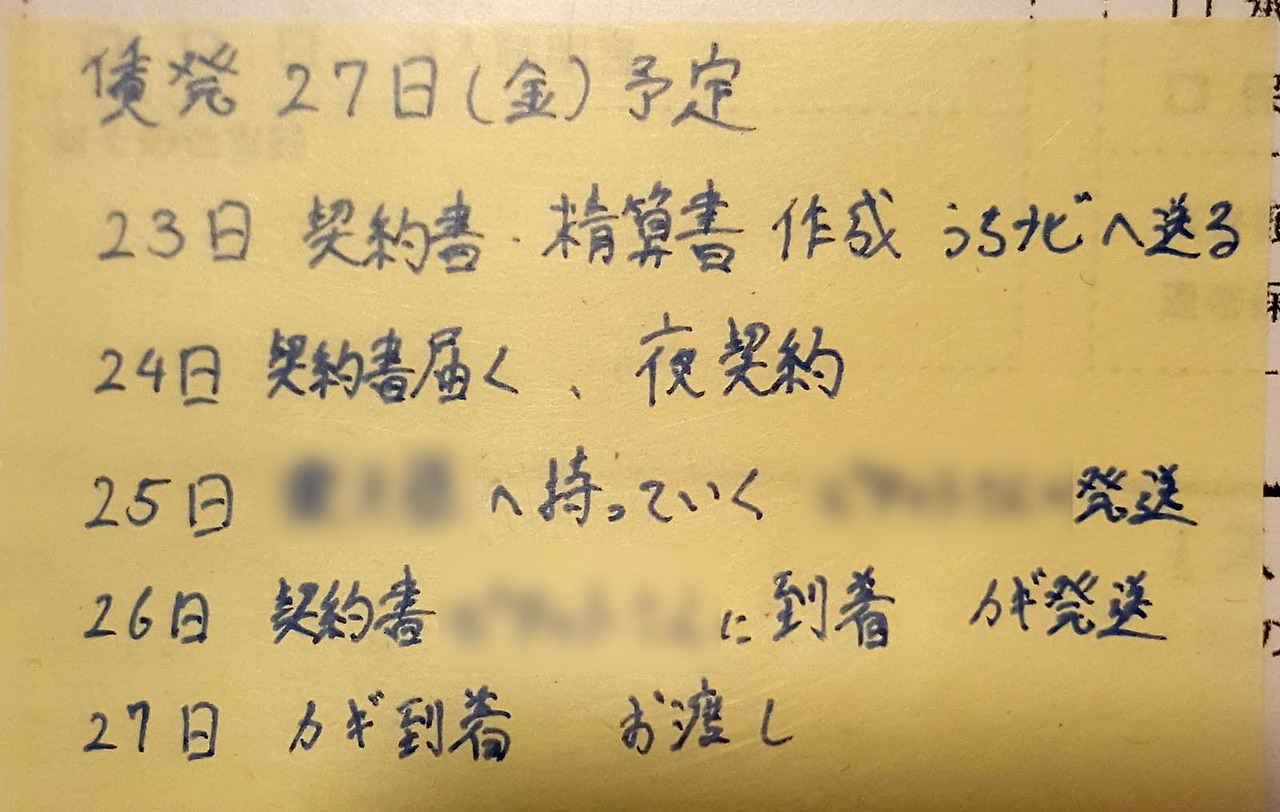 賃発 27日(金)予定
23日 契約書・精算書 作成 うちナビへ送る
24日 契約書届く、夜契約
25日 へ持っていく 発送
26日 契約書 に到着 カギ発送
27日 カギ到着 お渡し